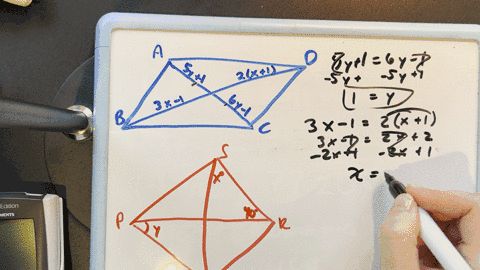 A
D
5y+1
2(x+1)
3x-1
6y-1
B
C
8y+1 = 6y-1
-5y+1 -5y+1
1 = y
3x-1 = 2(x+1)
3x-1 = 2x+2
-2x+1 -2x+1
x =
S
x°
P
y
R